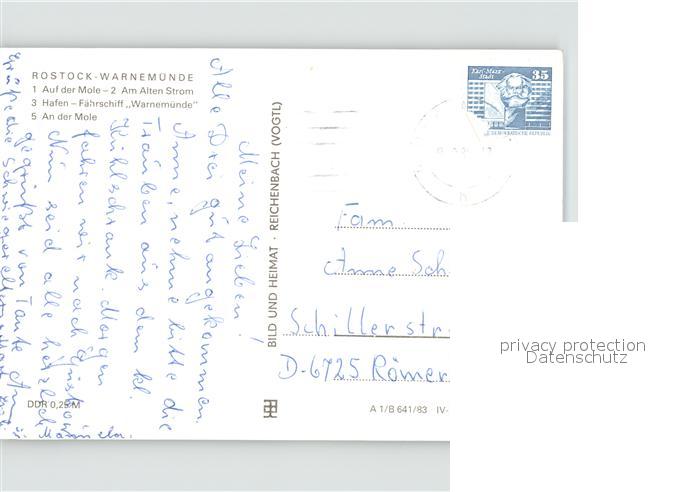 ROSTOCK-WARNEMÜNDE
1 Auf der Mole – 2 Am Alten Strom
3 Hafen – Fährschiff „Warnemünde"
5 An der Mole
Meine Lieben!
Alle Drei gut angekommen.
Anne, nehme bitte die
Trauben aus dem kl.
Kühlschrank. Morgen
fahren wir nach Güstrow
Nun seid alle herzlich
gegrüßt von Tante
Grüße die Schwiegereltern
Manuela.
DDR 0,25 M
BILD UND HEIMAT · REICHENBACH (VOGTL)
A 1/B 641/83 IV-
Karl-Marx-
Stadt
35
DEMOKRATISCHE REPUBLIK
Fam.
Anne Sch
Schillerstr.
D-6725 Römer
privacy protection
Datenschutz